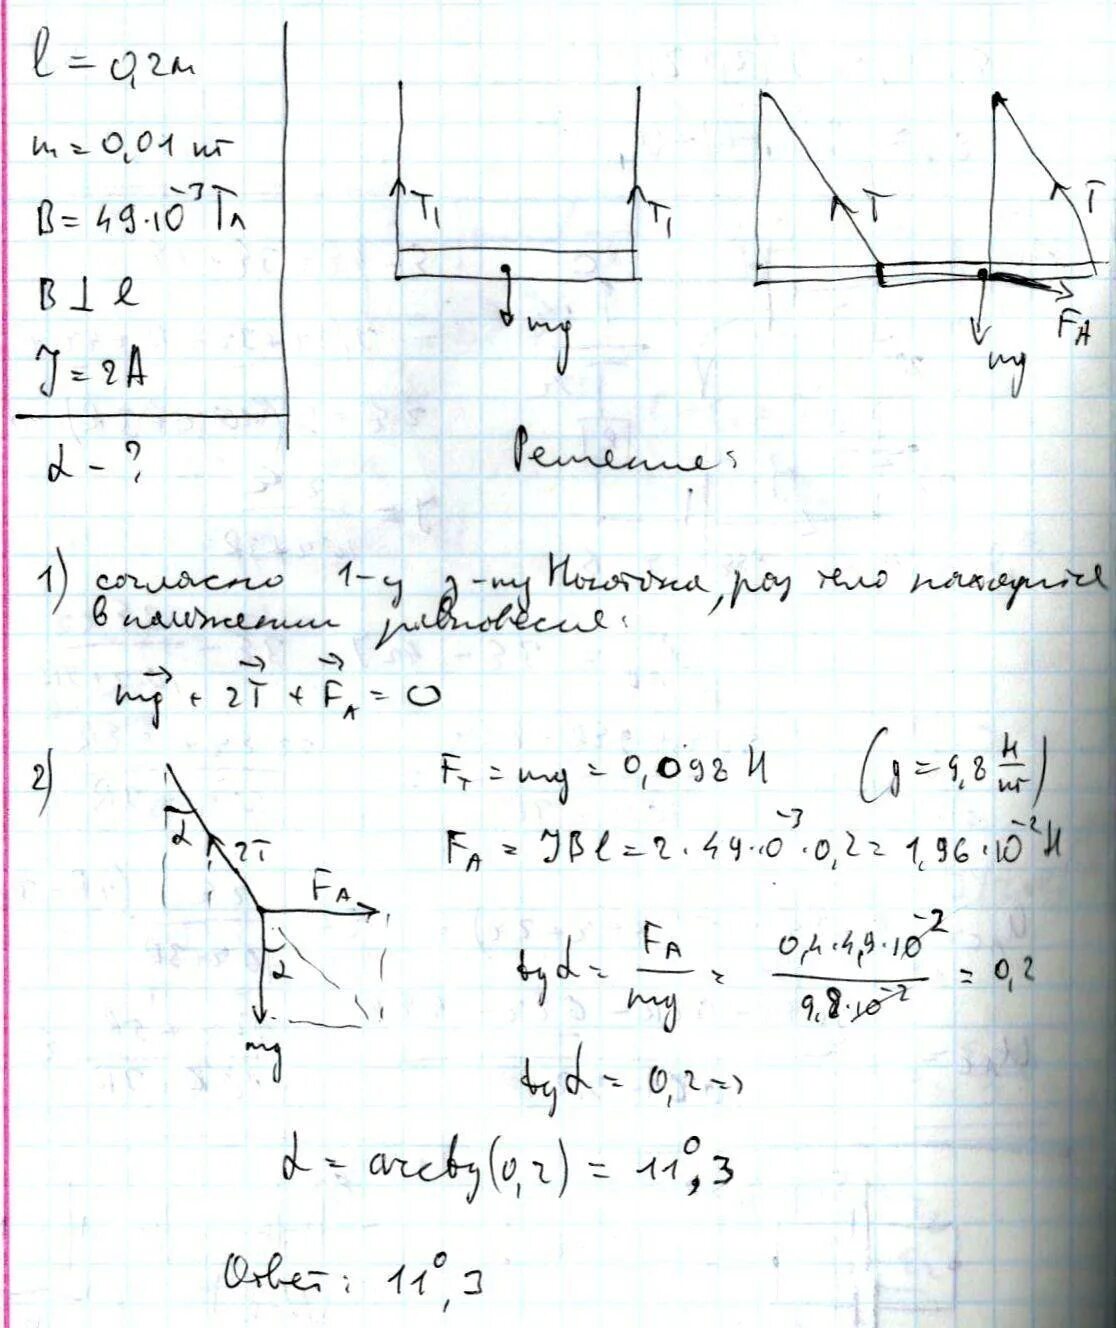 l = 0,2м
m = 0,01 кг
B = 49·10⁻³ Тл
B ⊥ l
J = 2A
α - ?
T₁ T₁
mg
T T
F_A
mg
Решение:
1) согласно 1-му з-ну Ньютона, раз тело находится
в положении равновесия:
mg⃗ + 2T⃗ + F⃗_A = 0
2)
F_т = mg = 0,098 Н (g = 9,8 Н/кг)
α
2T
F_A = JBl = 2·49·10⁻³·0,2 = 1,96·10⁻² Н
F_A
α
mg
tg α = F_A/mg = 0,4·4,9·10⁻²/9,8·10⁻² = 0,2
tg α = 0,2 =>
α = arctg(0,2) = 11°,3
Ответ: 11°,3